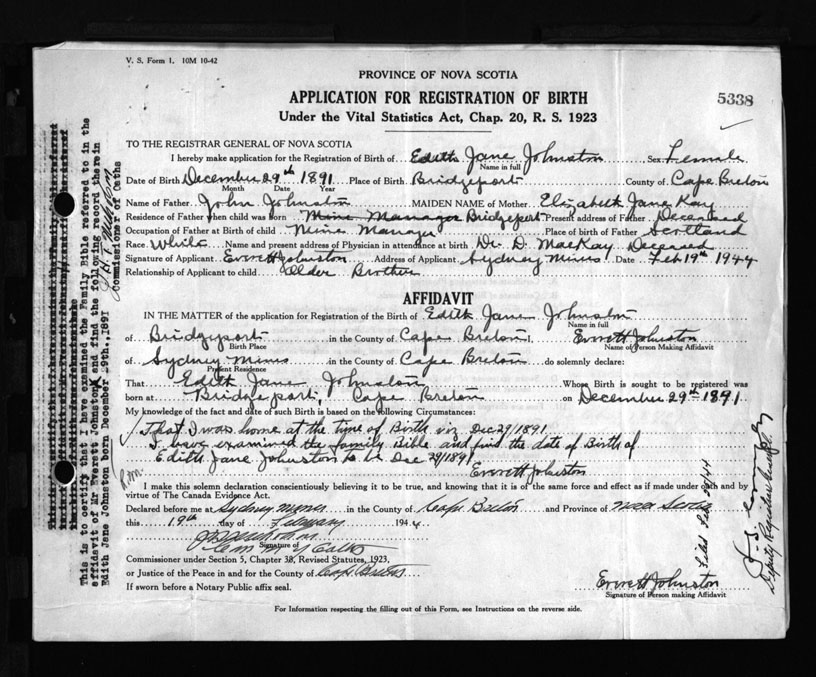 V. S. Form 1. 10M 10-42
PROVINCE OF NOVA SCOTIA
APPLICATION FOR REGISTRATION OF BIRTH
5338
Under the Vital Statistics Act, Chap. 20, R. S. 1923
TO THE REGISTRAR GENERAL OF NOVA SCOTIA
I hereby make application for the Registration of Birth of Edith Jane Johnston Sex Female
Name in full
Date of Birth December 29th 1891 Place of Birth Bridgeport County of Cape Breton
Month Date Year
Name of Father John Johnston MAIDEN NAME of Mother Elizabeth Jane Kay
Residence of Father when child was born Mine Manager Bridgeport Present address of Father Deceased
Occupation of Father at Birth of child Mine Manager Place of birth of Father Scotland
Race White Name and present address of Physician in attendance at birth Dr. D. MacKay Deceased
Signature of Applicant Everett Johnston Address of Applicant Sydney Mines Date Feb 19th 1944
Relationship of Applicant to child Older Brother
AFFIDAVIT
IN THE MATTER of the application for Registration of the Birth of Edith Jane Johnston
Name in full
of Bridgeport in the County of Cape Breton I, Everett Johnston
Birth Place Name of Person Making Affidavit
of Sydney Mines in the County of Cape Breton do solemnly declare:
Present Residence
That Edith Jane Johnston Whose Birth is sought to be registered was
born at Bridgeport, Cape Breton on December 29th 1891
My knowledge of the fact and date of such Birth is based on the following Circumstances:
That I was home at the time of Birth viz Dec 29/1891
I have examined the family Bible and find the date of Birth of
Edith Jane Johnston to be Dec 29/1891
Everett Johnston
I make this solemn declaration conscientiously believing it to be true, and knowing that it is of the same force and effect as if made under oath and by
virtue of The Canada Evidence Act.
Declared before me at Sydney Mines in the County of Cape Breton and Province of Nova Scotia
this 19th day of February 1944
Signature of
Commissioner under Section 5, Chapter 38, Revised Statutes, 1923,
or Justice of the Peace in and for the County of Cape Breton
If sworn before a Notary Public affix seal.
Everett Johnston
Signature of Person making Affidavit
For Information respecting the filling out of this Form, see Instructions on the reverse side.
This is to certify that I have examined the Family Bible referred to in the
affidavit of Mr Everett Johnston and find the following record therein
Edith Jane Johnston born December 29th.,1891
Commissioner of Oaths
Filed Feb 29/44
Deputy Registrar